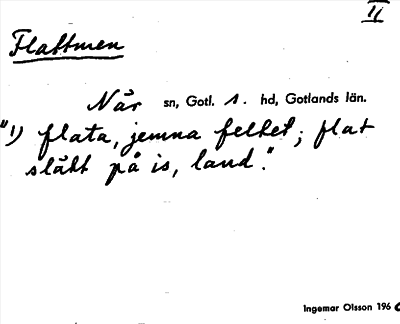 II
Flattmen
När sn, Gotl. 1. hd, Gotlands län.
"1) flata, jemna feltet; flat
slätt på is, land."
Ingemar Olsson 196